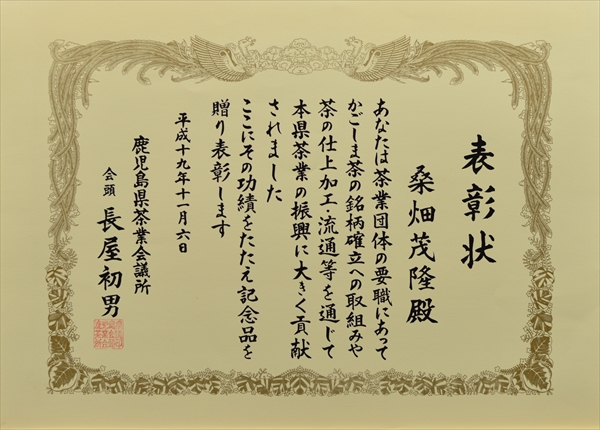 表彰状
桑畑茂隆殿
あなたは茶業団体の要職にあって
かごしま茶の銘柄確立への取組みや
茶の仕上加工・流通等を通じて
本県茶業の振興に大きく貢献
されました
ここにその功績をたたえ記念品を
贈り表彰します
平成十九年十一月六日
鹿児島県茶業会議所
会頭 長屋初男